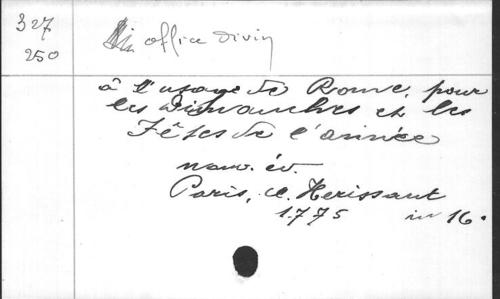 327
250
office divin
à l'usage de Rome, pour
les Dimanches et les
Fêtes de l'année
nouv. éd.
Paris, Cl. Herissant
1775 in 16.